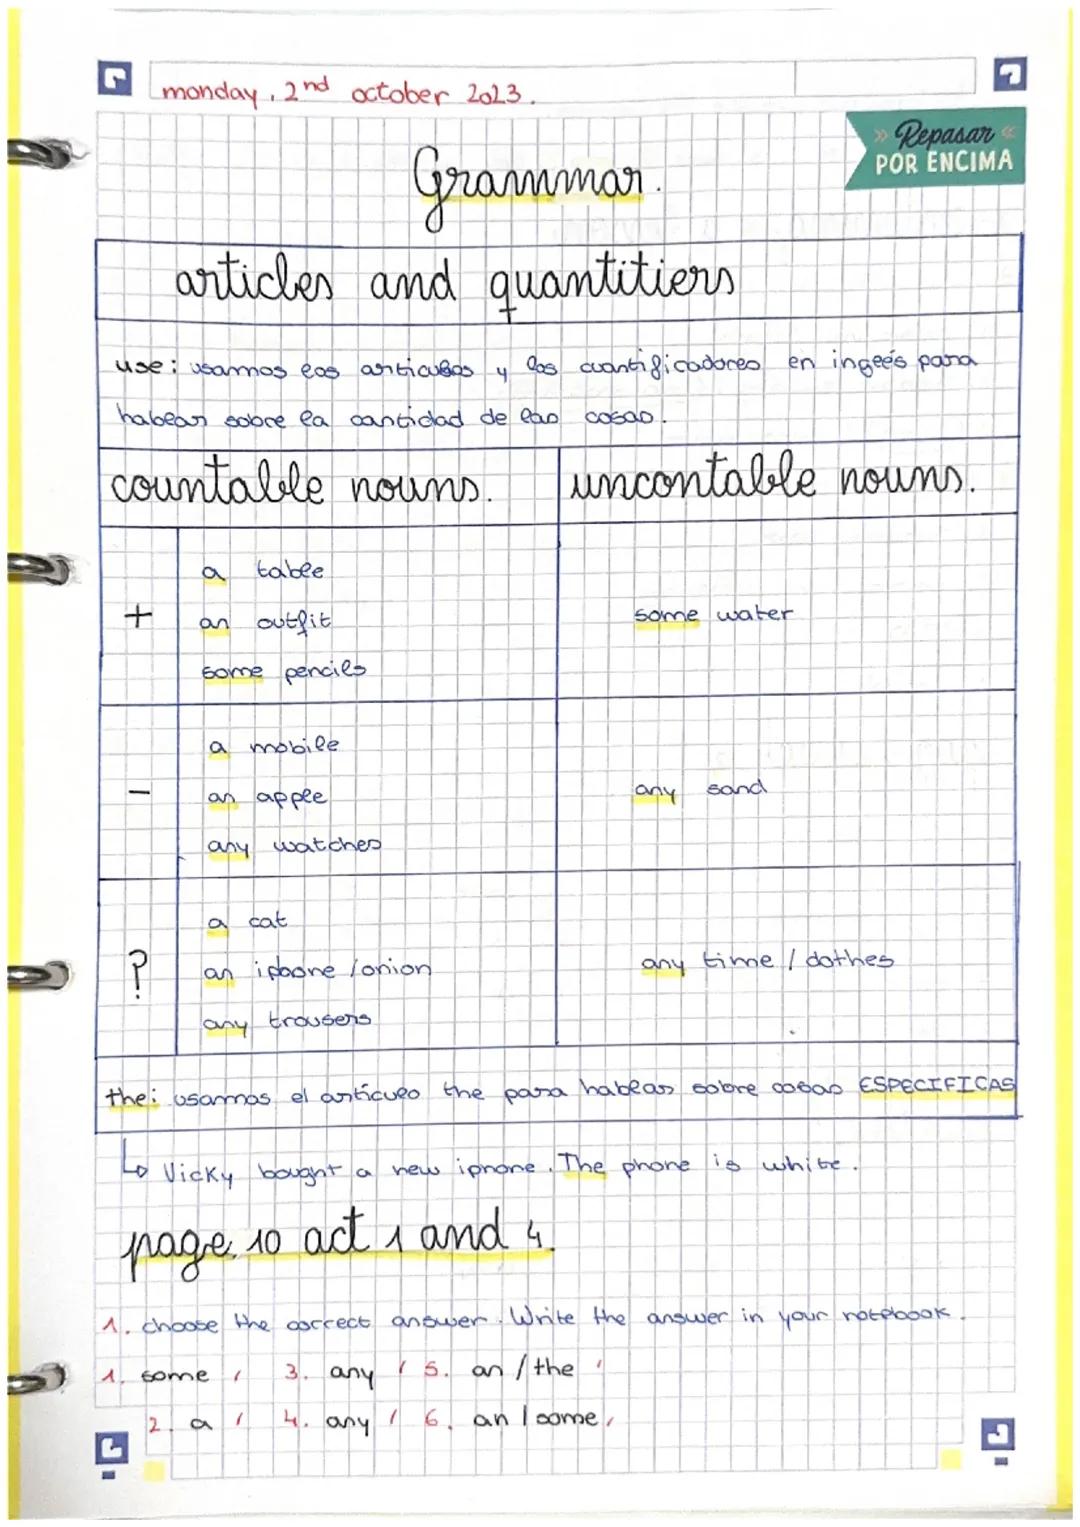 monday, 2nd october 2023.
» Repasar «
POR ENCIMA
Grammar.
articles and quantitiers
use: usamos los articulos y los cuantificadores en inglés para
hablar sobre la cantidad de las cosas.
countable nouns. uncontable nouns.
a table
+ an outfit some water
some pencils
a mobile
- an apple any sand
any watches
a cat
? an iphone / onion any time / clothes
any trousers
the: usamos el artículo the para hablar sobre cosas ESPECIFICAS
↳ Vicky bought a new iphone. The phone is white.
page 10 act 1 and 4.
1. choose the correct answer. Write the answer in your notebook.
1. some / 3. any / 5. an / the /
2. a / 4. any / 6. an / some /